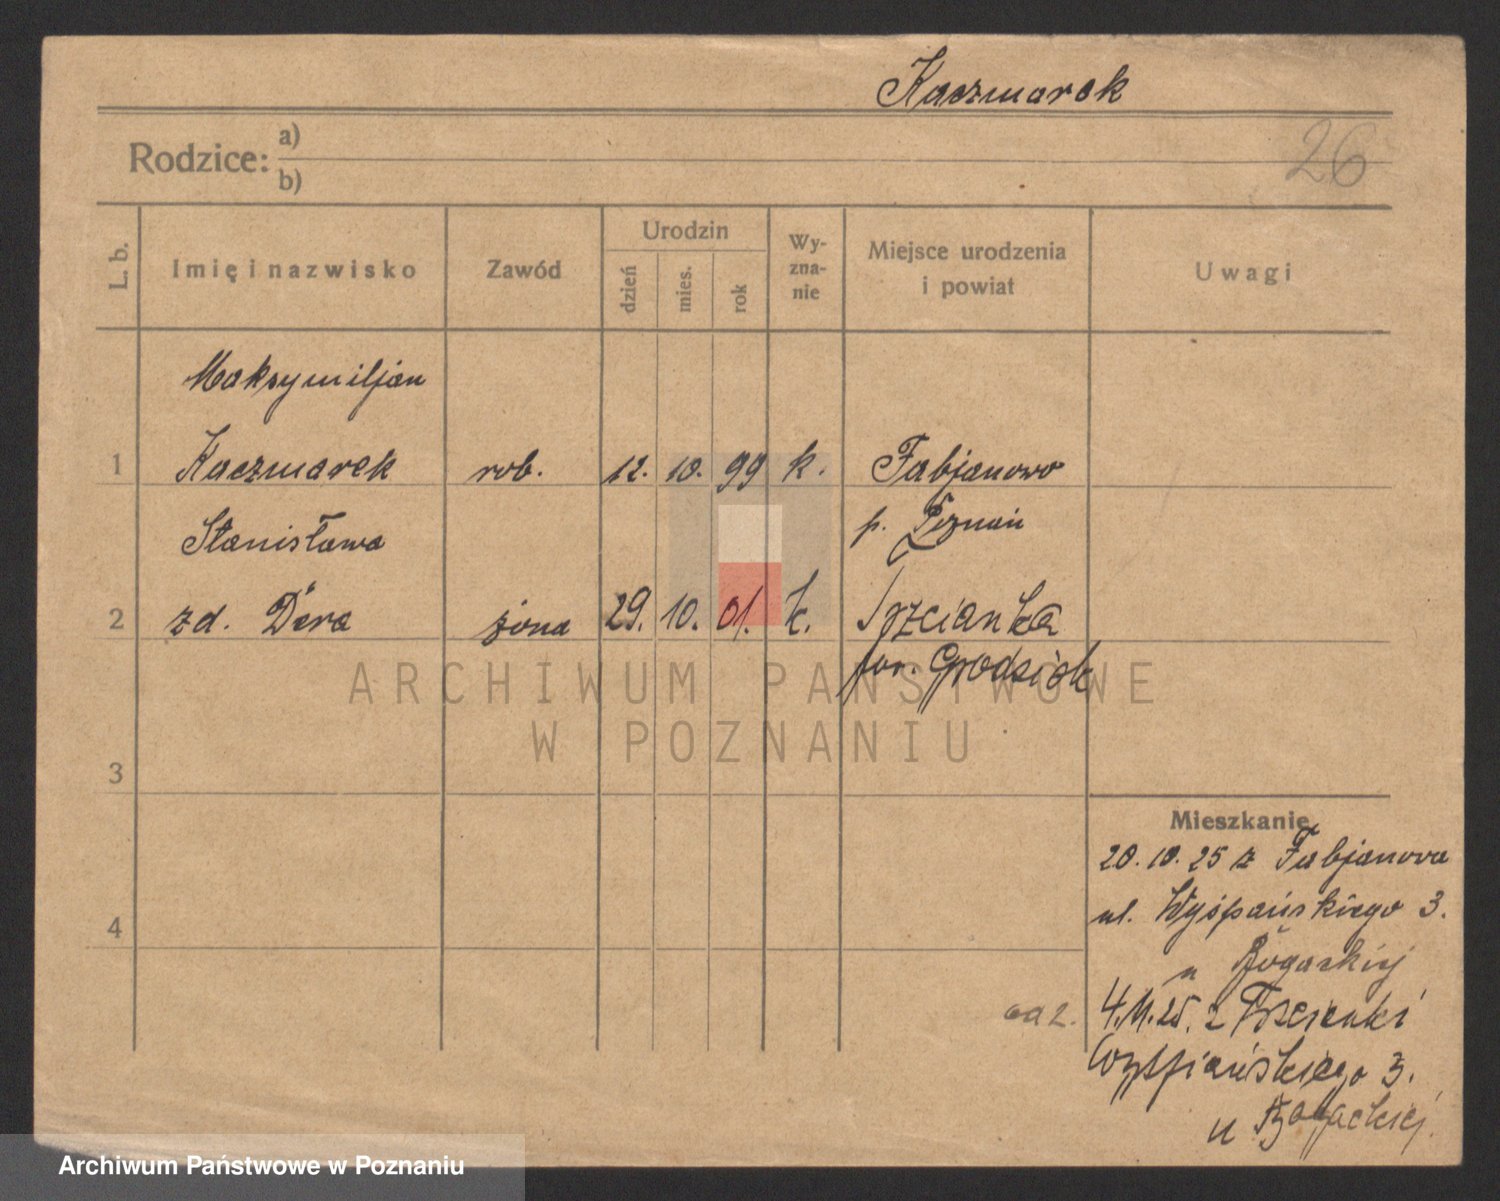 Kaczmarek
26
Rodzice: a)
b)
L. b.
Imię i nazwisko
Zawód
Urodzin
dzień
mies.
rok
Wy-
zna-
nie
Miejsce urodzenia
i powiat
Uwagi
Maksymiljan
1 Kaczmarek rob. 12. 10. 99 k. Fabjanowo
Stanisława p. Poznań
2 zd. Dera żona 29. 10. 01. k. Trzcianka
pow. Grodzisk
ARCHIWUM PAŃSTWOWE
W POZNANIU
3
Mieszkanie
20. 10. 25 z Fabjanowa
4
ul. Wyśpańskiego 3.
u Bogackiej
ad 2. 4. 11. 25. z Trzcianki
Wyspiańskiego 3.
u Bogackiej.
Archiwum Państwowe w Poznaniu